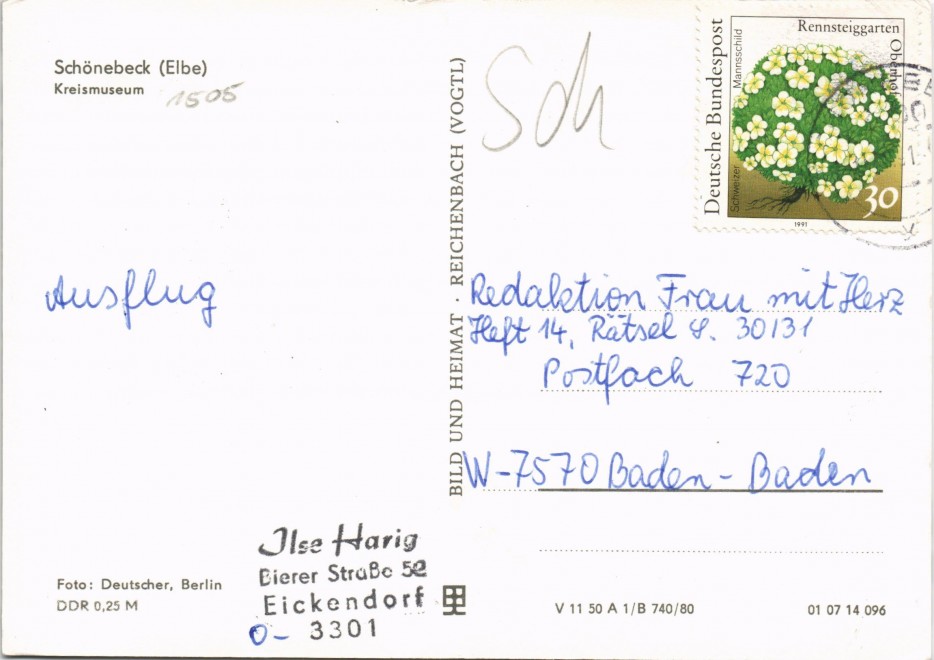 Schönebeck (Elbe)
Kreismuseum
1505
Sch
Deutsche Bundespost
Schweizer Mannsschild
Rennsteiggarten
Oberhof
30
1991
BILD UND HEIMAT · REICHENBACH (VOGTL)
Ausflug
Redaktion Frau mit Herz
Heft 14, Rätsel S. 30/31
Postfach 720
W-7570 Baden-Baden
Ilse Harig
Bierer Straße 52
Eickendorf
O- 3301
Foto: Deutscher, Berlin
DDR 0,25 M
V 11 50 A 1/B 740/80
01 07 14 096